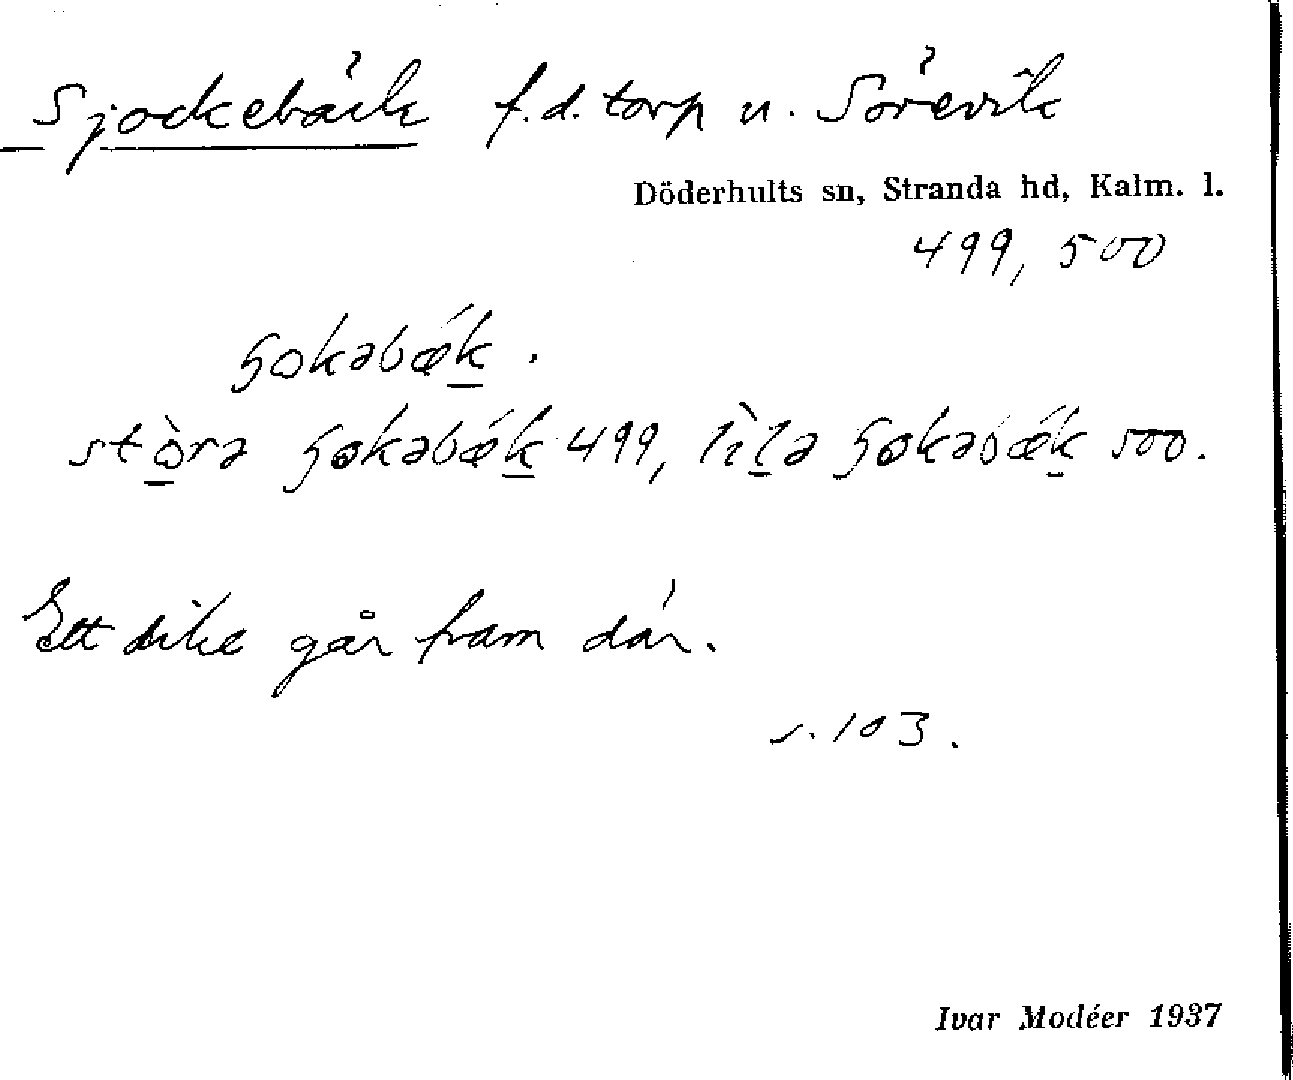 Sjockebäck f.d. torp u. Sörevik
Döderhults sn, Stranda hd, Kalm. l.
499, 500
ɧokəbǽk.
stòrə ɧokəbǽk 499, lìlə ɧokəbǽk 500.
Ett dike går fram där.
s. 103.
Ivar Modéer 1937